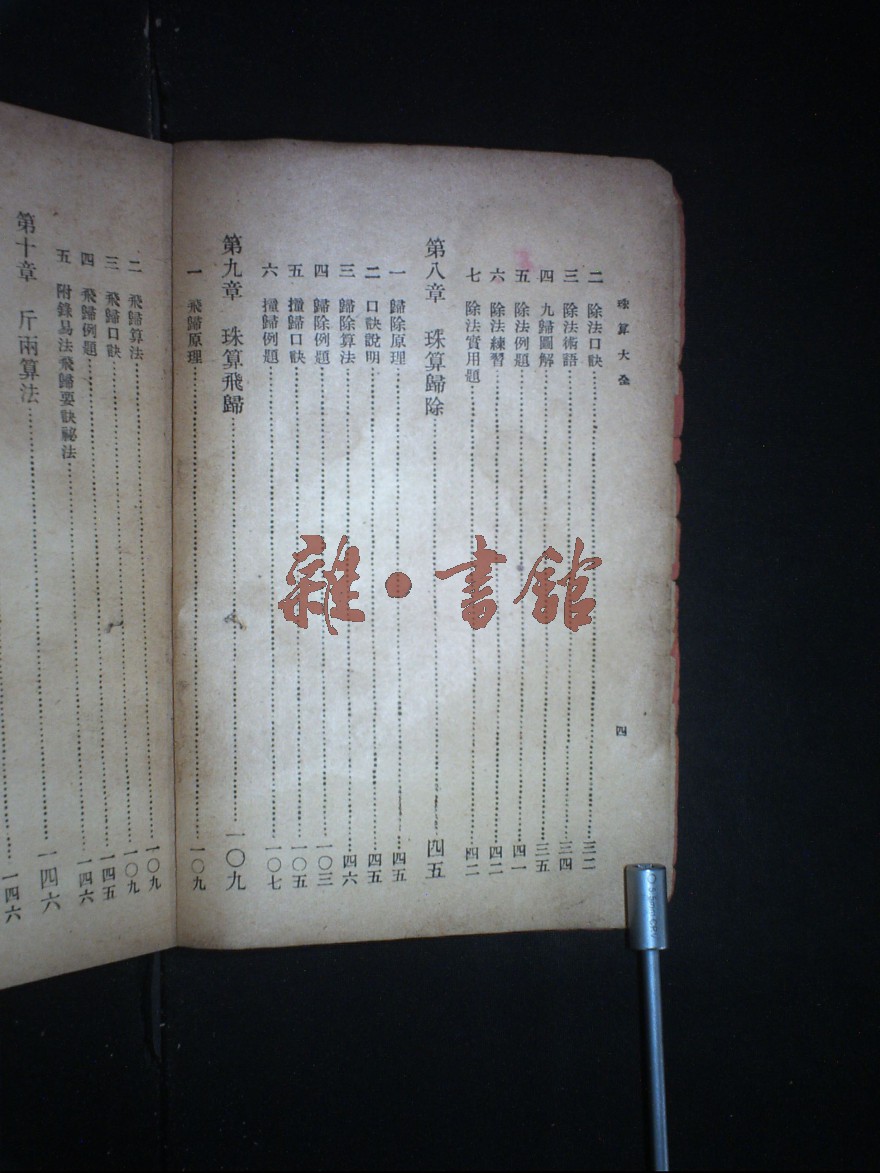 珠算大全
四
二 除法口訣……三二
三 除法術語……三四
四 九歸圖解……三五
五 除法例題……四一
六 除法練習……四二
七 除法實用題……四二
第八章 珠算歸除……四五
一 歸除原理……四五
二 口訣說明……四五
三 歸除算法……四六
四 歸除例題……一〇三
五 撞歸口訣……一〇五
六 撞歸例題……一〇七
第九章 珠算飛歸……一〇九
一 飛歸原理……一〇九
二 飛歸算法……一〇九
三 飛歸口訣……一〇九
四 飛歸例題……一四五
五 附錄易法飛歸要訣祕法……一四六
第十章 斤兩算法……一四六
一四六
雜·書館